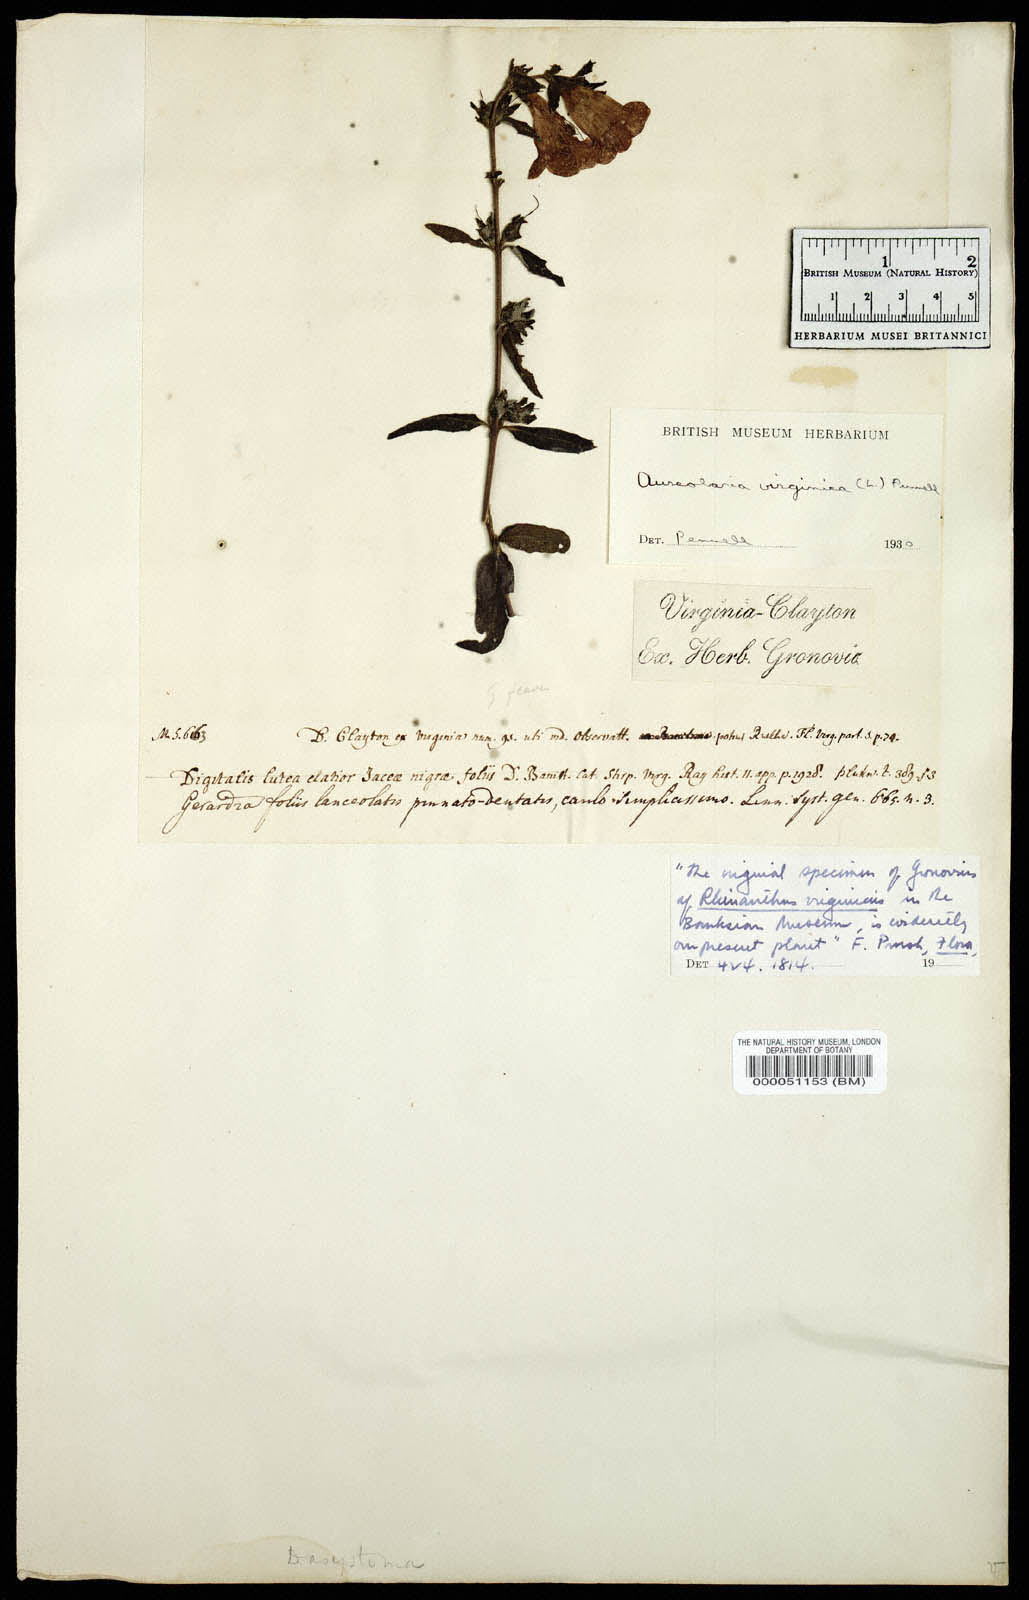 1 2
BRITISH MUSEUM (NATURAL HISTORY)
1 2 3 4 5
HERBARIUM MUSEI BRITANNICI
BRITISH MUSEUM HERBARIUM
Aureolaria virginica (L.) Pennell
DET. Pennell 1930
Virginia-Clayton
Ex. Herb. Gronovio
D. Clayton ex Virginia num. 95. uti vid. Observatt. potius Fl. Virg. part. 2. p. 24.
Digitalis lutea elatior Jaceæ nigræ foliis D. Banist. Cat. Stirp. Virg. Ray hist. 11. app. p. 1928. Pluk. t. 389. f. 3
Gerardia foliis lanceolatis pinnato-dentatis, caule simplicissimo. Linn. Syst. gen. 665. n. 3.
"The original specimen of Gronovius
of Rhinanthus virginicus in the
Banksian Museum, is evidently
our present plant" F. Pursh, Flora,
DET 424. 1814. 19
THE NATURAL HISTORY MUSEUM, LONDON
DEPARTMENT OF BOTANY
000051153 (BM)
Dasystoma